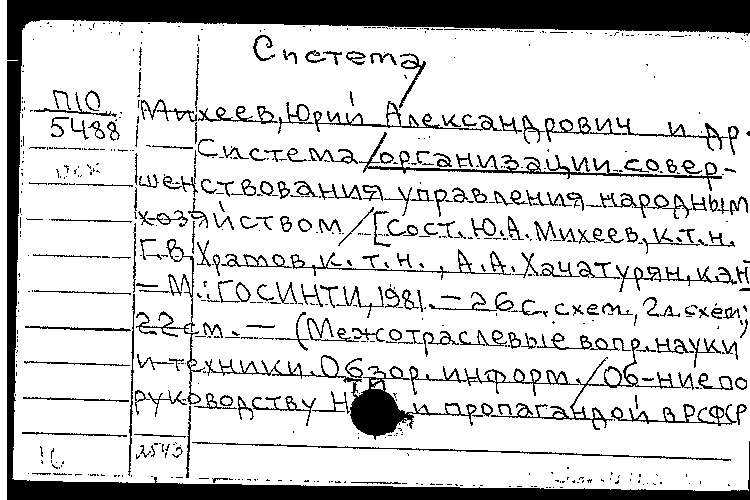 Система/
П10
5488
Михеев, Юрий Александрович и др.
Система/организации совер-
шенствования управления народным
хозяйством/[Сост. Ю.А. Михеев, к.т.н.
Г.В. Храмов, к.т.н., А.А. Хачатурян, к.эн]
— М.: ГОСИНТИ, 1981. — 26 с. схем., 2 л. схем;
22 см. — (Межотраслевые вопр. науки
и техники. Обзор. информ./Об-ние по
руководству НТП и пропагандой в РСФСР
2543